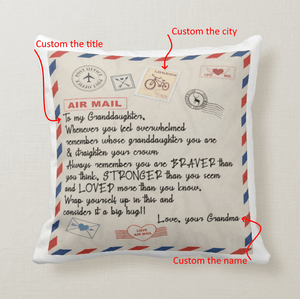 Custom the city
Custom the title
LONDON
AIR MAIL
To my Granddaughter,
Whenever you feel overwhelmed
remember whose granddaughter you are
& straighten your crown
Always remember you are BRAVER than
you think, STRONGER than you seem
and LOVED more than you know.
Wrap yourself up in this and
consider it a big hug!!
Love, your Grandma
LOVE
AIR MAIL
Custom the name